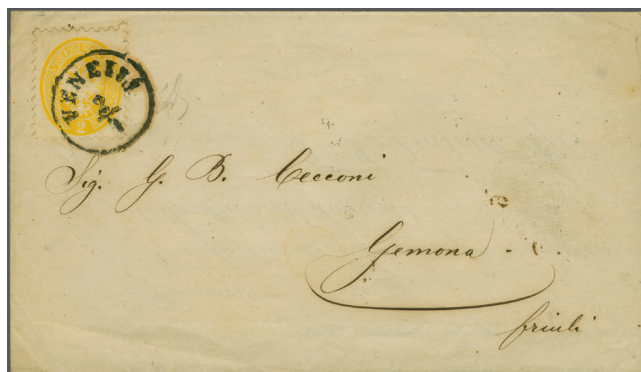 VENEZIA
Sig. G. B. Cecconi
Gemona
friuli